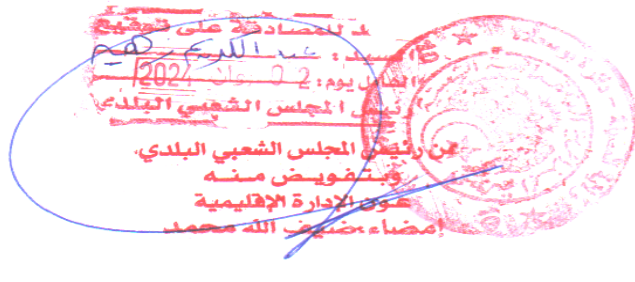 للمصادقة على توقيع
السيد: عبد الكريم
يوم: 2 0 جوان 2024
رئيس المجلس الشعبي البلدي
عن رئيس المجلس الشعبي البلدي،
وبتفويض منه
عون الإدارة الإقليمية
إمضاء: ضيف الله محمد